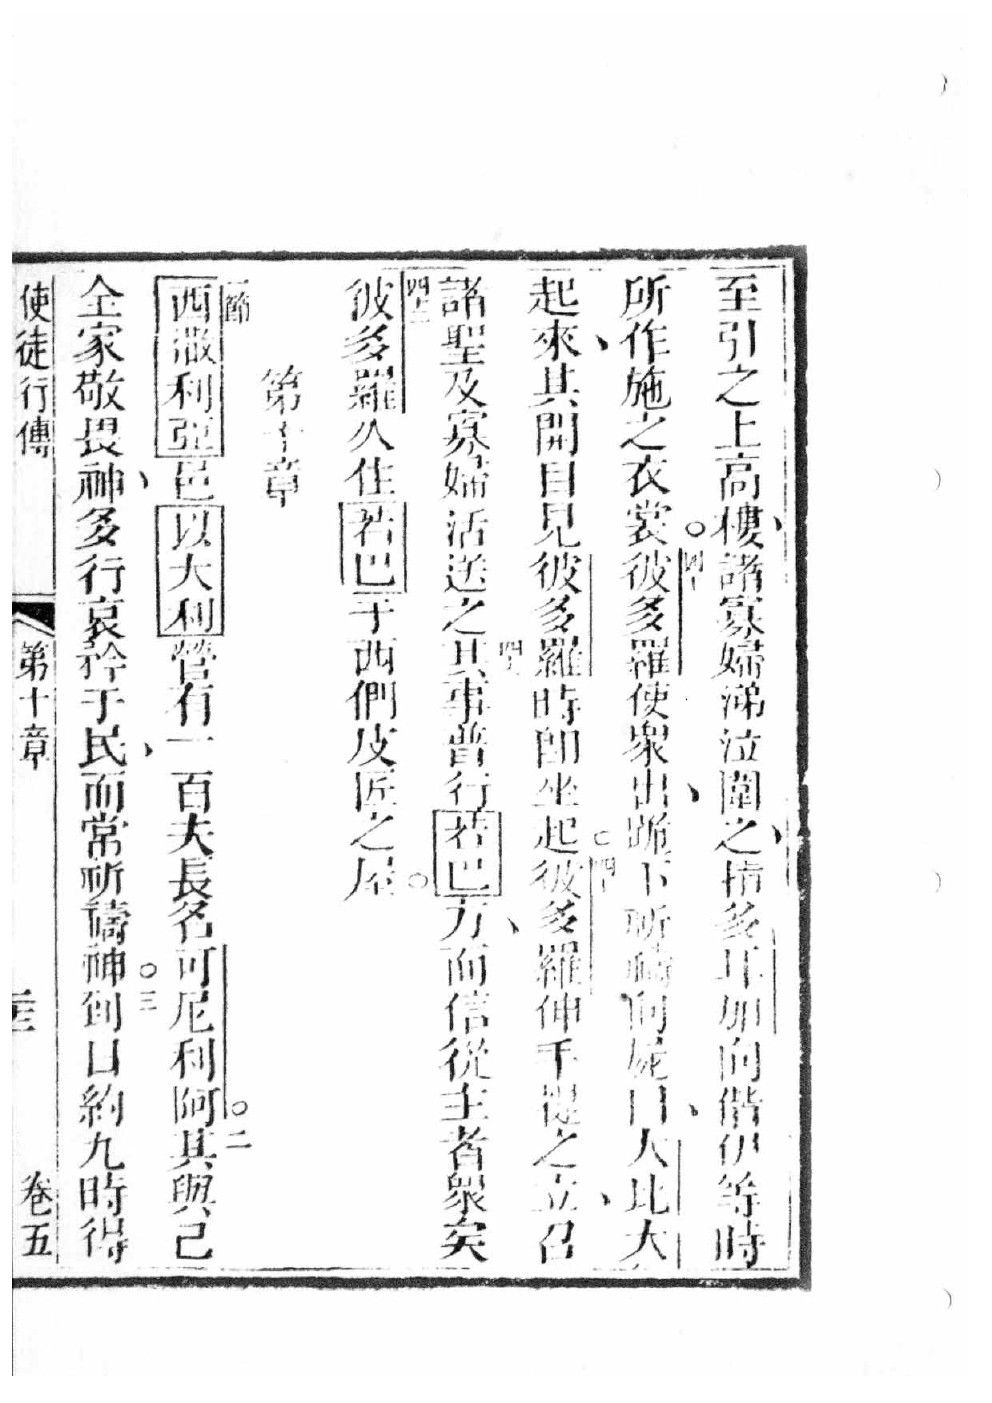 至引之上高樓、諸寡婦涕泣圍之、指多耳加向偕伊等時
所作施之衣裳。四十彼多羅使眾出、跪下祈禱向屍曰、大比大
起來、其開目見彼多羅時卽坐起。四一彼多羅伸手提之立、召
諸聖及寡婦活送之四二其事普行若巴方、而信從主者眾矣
四三彼多羅久住若巴于西們皮匠之屋。
第十章
一節西撒利亞邑以大利營有一百夫長名可尼利阿。二其與己
全家敬畏神、多行哀矜于民、而常祈禱神。三到日約九時得
使徒行傳 第十章 卷五